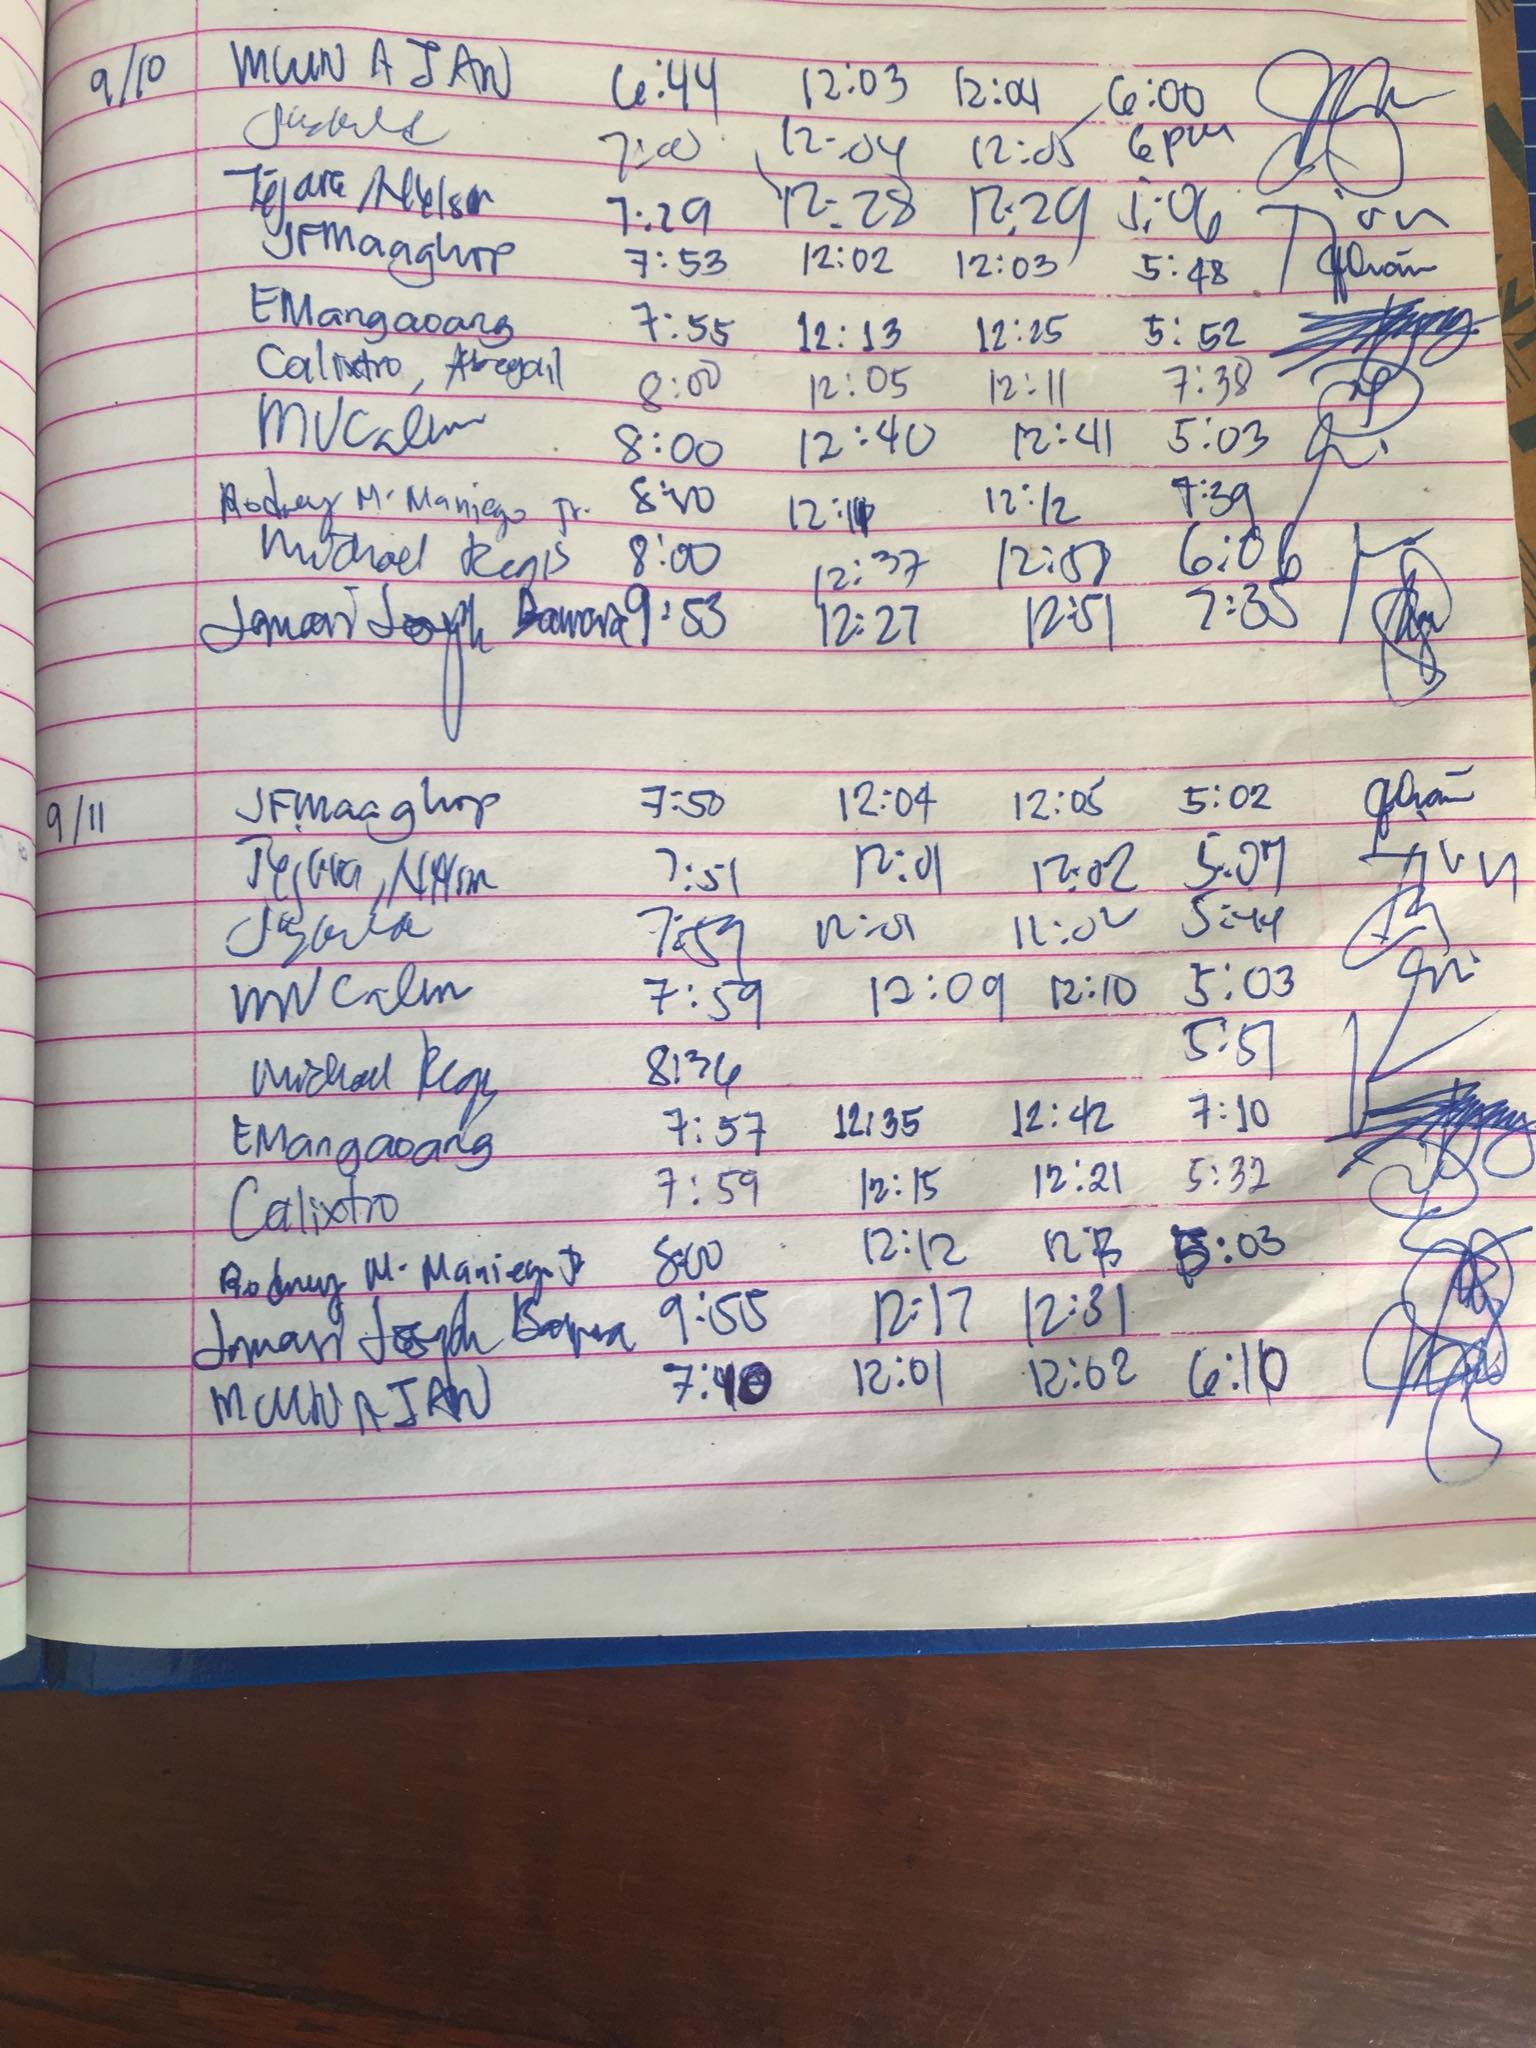 9/10 MCUNAJAN 6:44 12:03 12:04 6:00
7:00 12:04 12:05 6pm
Tejara, Nielson 7:29 12:28 12:29 5:06
JFMaaghop 7:53 12:02 12:03 5:48
EMangaoang 7:55 12:13 12:25 5:52
Calixtro, Abegail 8:00 12:05 12:11 7:38
MV 8:00 12:40 12:41 5:03
Rodney M. Maniego Jr. 8:00 12:12 7:39
Michael Regis 8:00 12:37 6:06
Joseph 9:53 12:27 12:51 7:35
9/11 JFMaaghop 7:50 12:04 12:05 5:02
Tejara, 7:51 12:01 12:02 5:07
7:59 12:01 12:02 5:44
MV 7:59 12:09 12:10 5:03
Michael Regis 8:36 5:51
EMangaoang 7:57 12:35 12:42 7:10
Calixtro 7:59 12:15 12:21 5:32
Rodney M. Maniego Jr 8:00 12:12 12:13 5:03
Joseph 9:55 12:17 12:31
MCUNAJAN 7:40 12:01 12:02 6:10